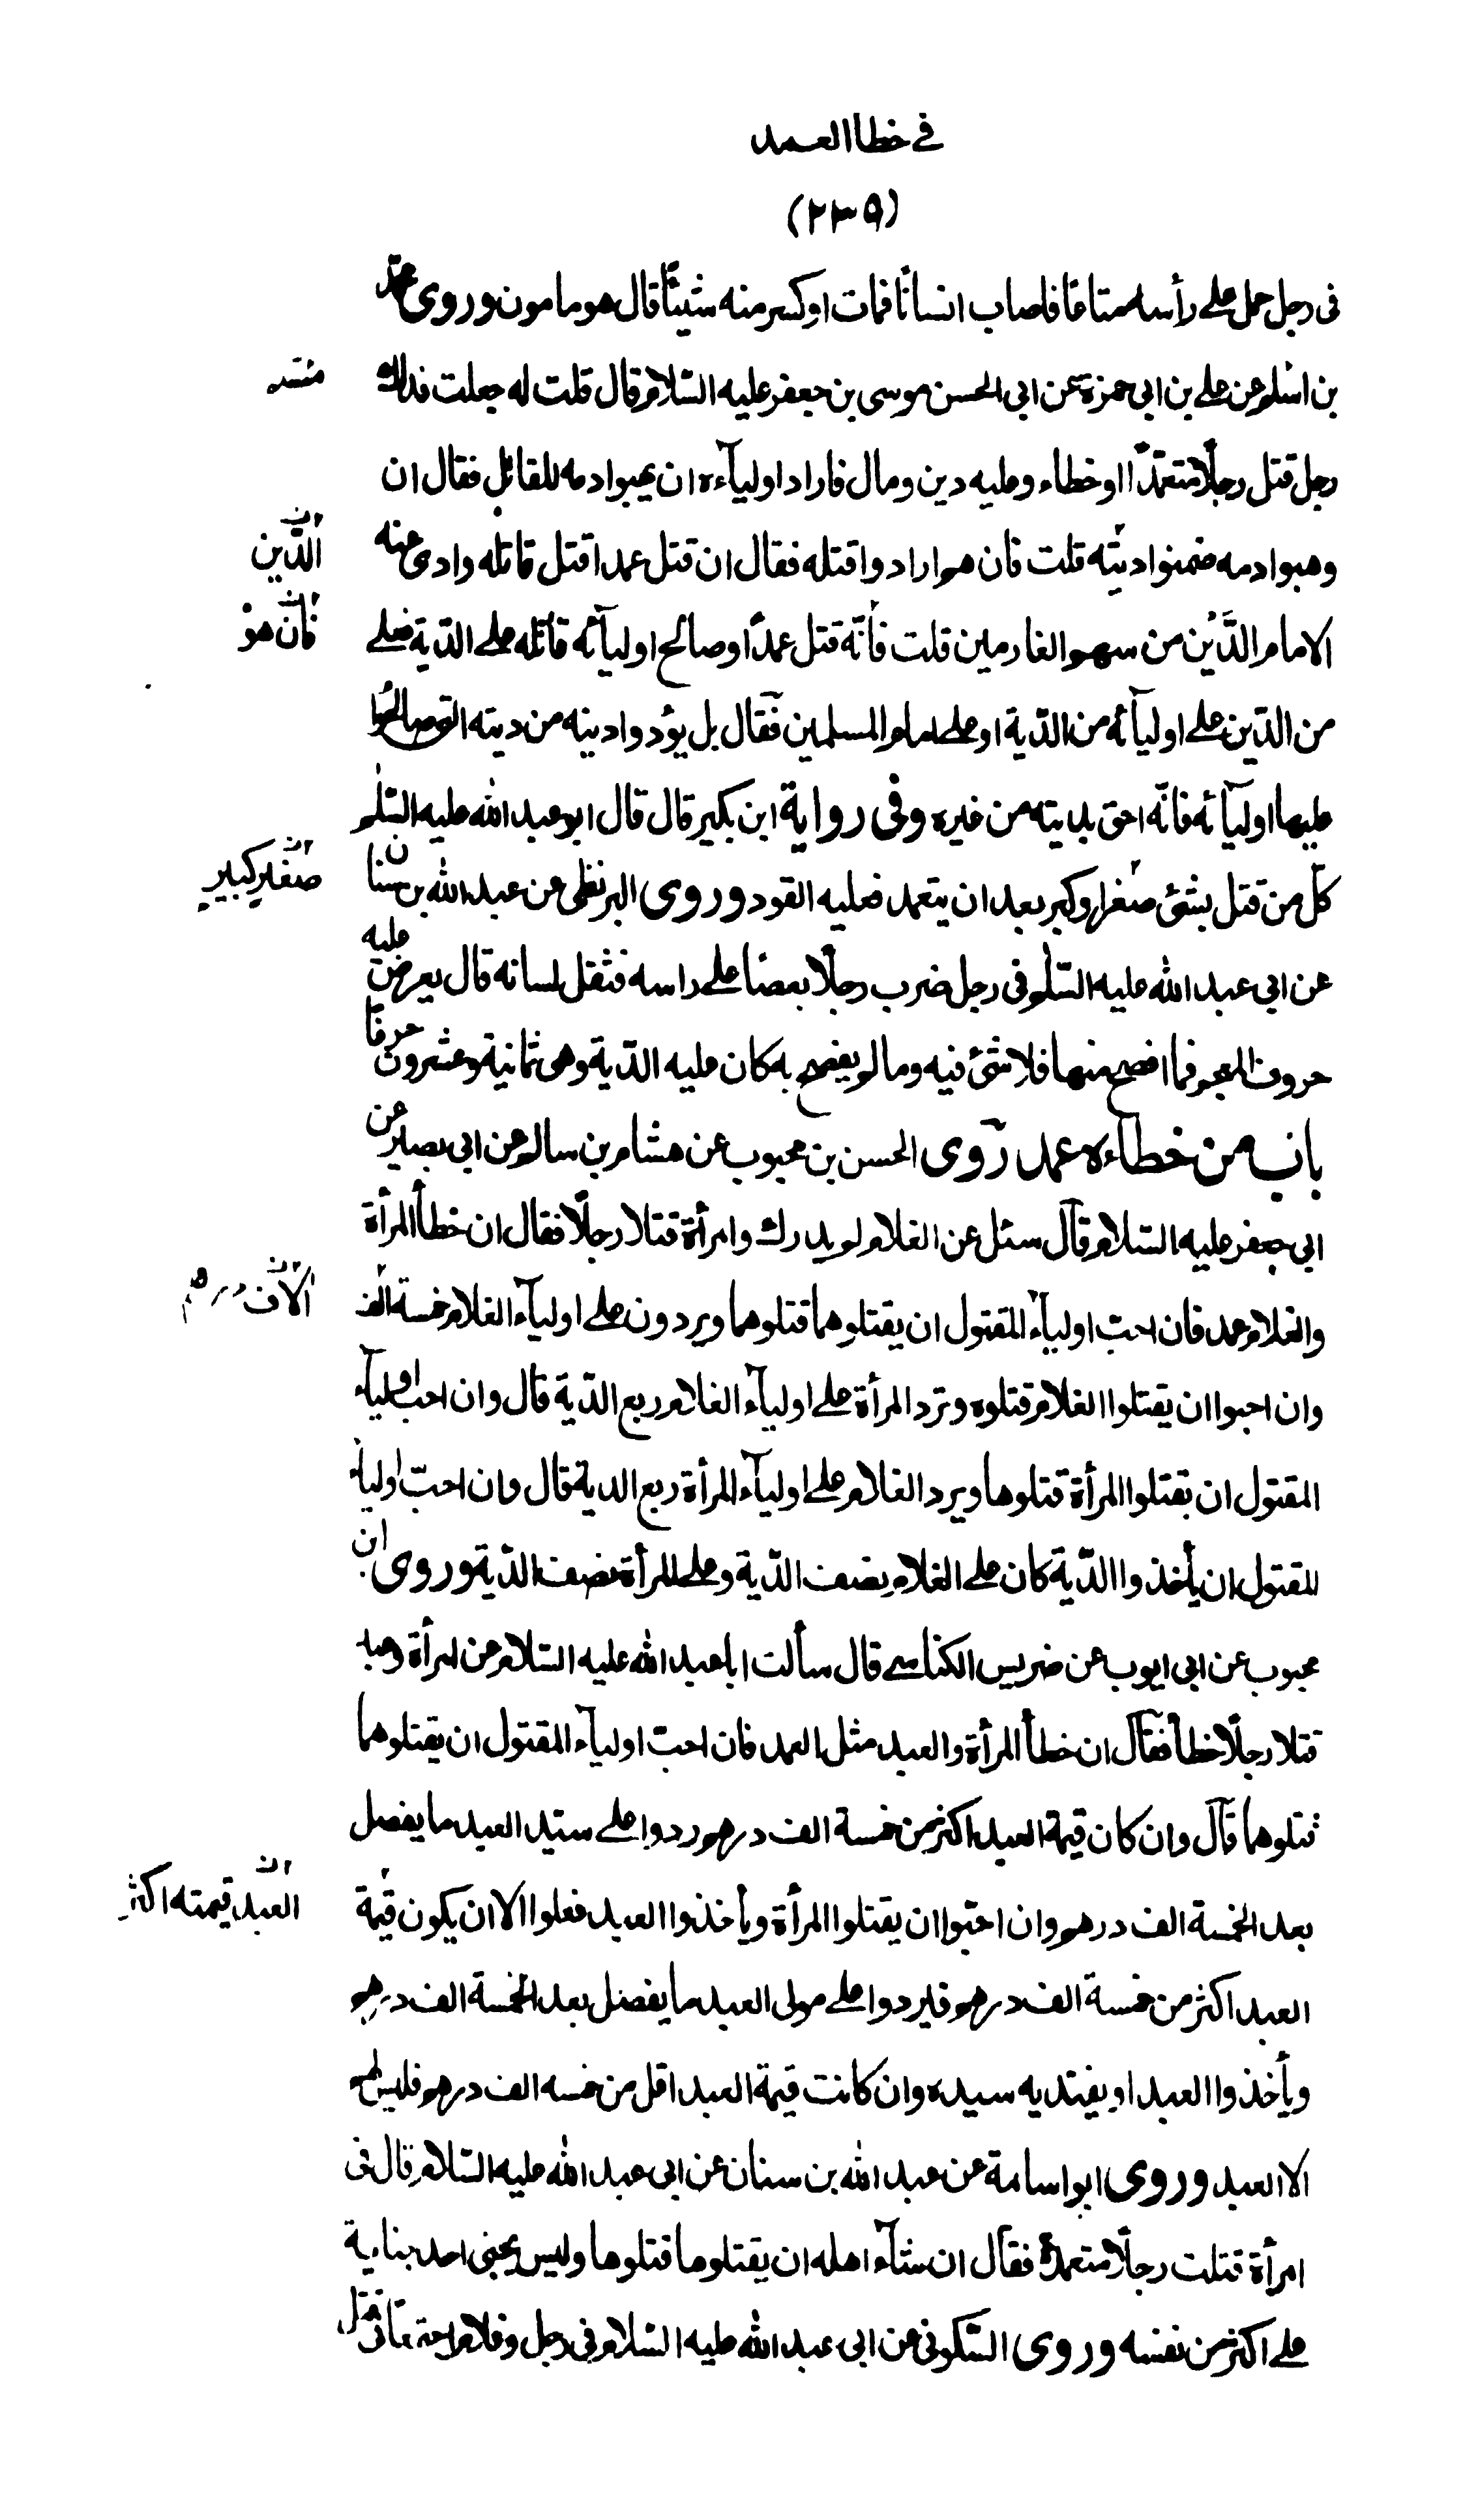 في خطا العمد
(٢٣٥)
فى رجل حمل على رأسه متاعًا فاصاب انسانًا فمات اوكسر منه شيئًا قال هو مامون وروى محمّد
بن اسلم عن على بن ابى حمزة عن ابى الحسن موسى بن جعفر عليه السّلام قال قلت له جعلت فداك
رجل قتل رجلًا متعمّدًا اوخطاء وعليه دين ومال فاراد اوليآءه ان يهبوا دمه للقاتل فقال ان
وهبوا دمه ضمنوا ديته قلت فان هم ارادوا قتله فقال ان قتل عمدا قتل قاتله وادى عنه
الدّين
الامام الدّين من سهم الغارمين قلت فانّه قتل عمدًا وصالح اوليآئه قاتله على الدّية فعلى
فانّ هو
من الدّين على اوليآئه من الدّية او على امام المسلمين فقال بل يؤدوا دينه من ديته التى صالحوا
عليها اوليآئه فانّه احق بديته من غيره وفى رواية ابن بكير قال قال ابو عبد الله عليه السّلم
كلّ من قتل بشئ صغر او كبر بعد ان يتعمد فعليه القود وروى البزنطى عن عبد الله بن سنان
صغير كبير
عن ابى عبد الله عليه السّلم فى رجل ضرب رجلًا بعصا على راسه فثقل لسانه قال يعرض عليه
حروف المعجم فما افصح منها فلا شئ فيه وما لم يفصح به كان عليه الدّية وهى ثمانية وعشرون حرفًا
باب من خطاءه عمد روى الحسن بن محبوب عن هشام بن سالم عن ابى بصير عن
ابى جعفر عليه السّلام قال سئل عن الغلام لم يدرك وامرأة قتلا رجلًا فقال ان خطأ المرأة
والغلام عمد فان احبّ اوليآء المقتول ان يقتلوهما قتلوهما ويردون على اوليآء الغلام خمسة الف
الاف
وان احبوا ان يقتلوا الغلام قتلوه وترد المرأة على اوليآء الغلام ربع الدّية قال وان احب اوليآء
المقتول ان يقتلوا المرأة قتلوها ويرد الغلام على اوليآء المرأة ربع الدية قال وان احبّ اولياء
المقتول ان يأخذوا الدّية كان على الغلام نصف الدّية وعلى المرأة نصف الدّية وروى ابن
محبوب عن ابى ايوب عن ضريس الكناسى قال سألت ابا عبد الله عليه السّلام عن امرأة وعبد
قتلا رجلًا خطأ فقال ان خطأ المرأة والعبد مثل العمد فان احبّ اوليآء المقتول ان يقتلوهما
قتلوهما قال وان كان قيمة العبد اكثر من خمسة الف درهم ردوا على سيّد العبد ما يفضل
بعد الخمسة الف درهم وان احبّوا ان يقتلوا المرأة ويأخذوا العبد فعلوا الا ان يكون قيمة
العبد قيمته اكثر
العبد اكثر من خمسة الف درهم فليردوا على مولى العبد ما يفضل بعد الخمسة الف درهم
ويأخذوا العبد او يفتديه سيده وان كانت قيمة العبد اقل من خمسه الف درهم فليس لهم
الا العبد وروى ابو اسامة عن عبد الله بن سنان عن ابى عبد الله عليه السّلام قال فى
امرأة قتلت رجلًا متعمدة فقال ان شآء اهله ان يقتلوها قتلوها وليس يجنى احد جناية
على اكثر من نفسه وروى السّكونى عن ابى عبد الله عليه السّلام فى رجل وغلام